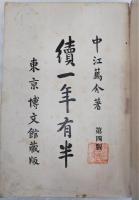 中江篤介著
第四版
續一年有半
東京博文館藏版